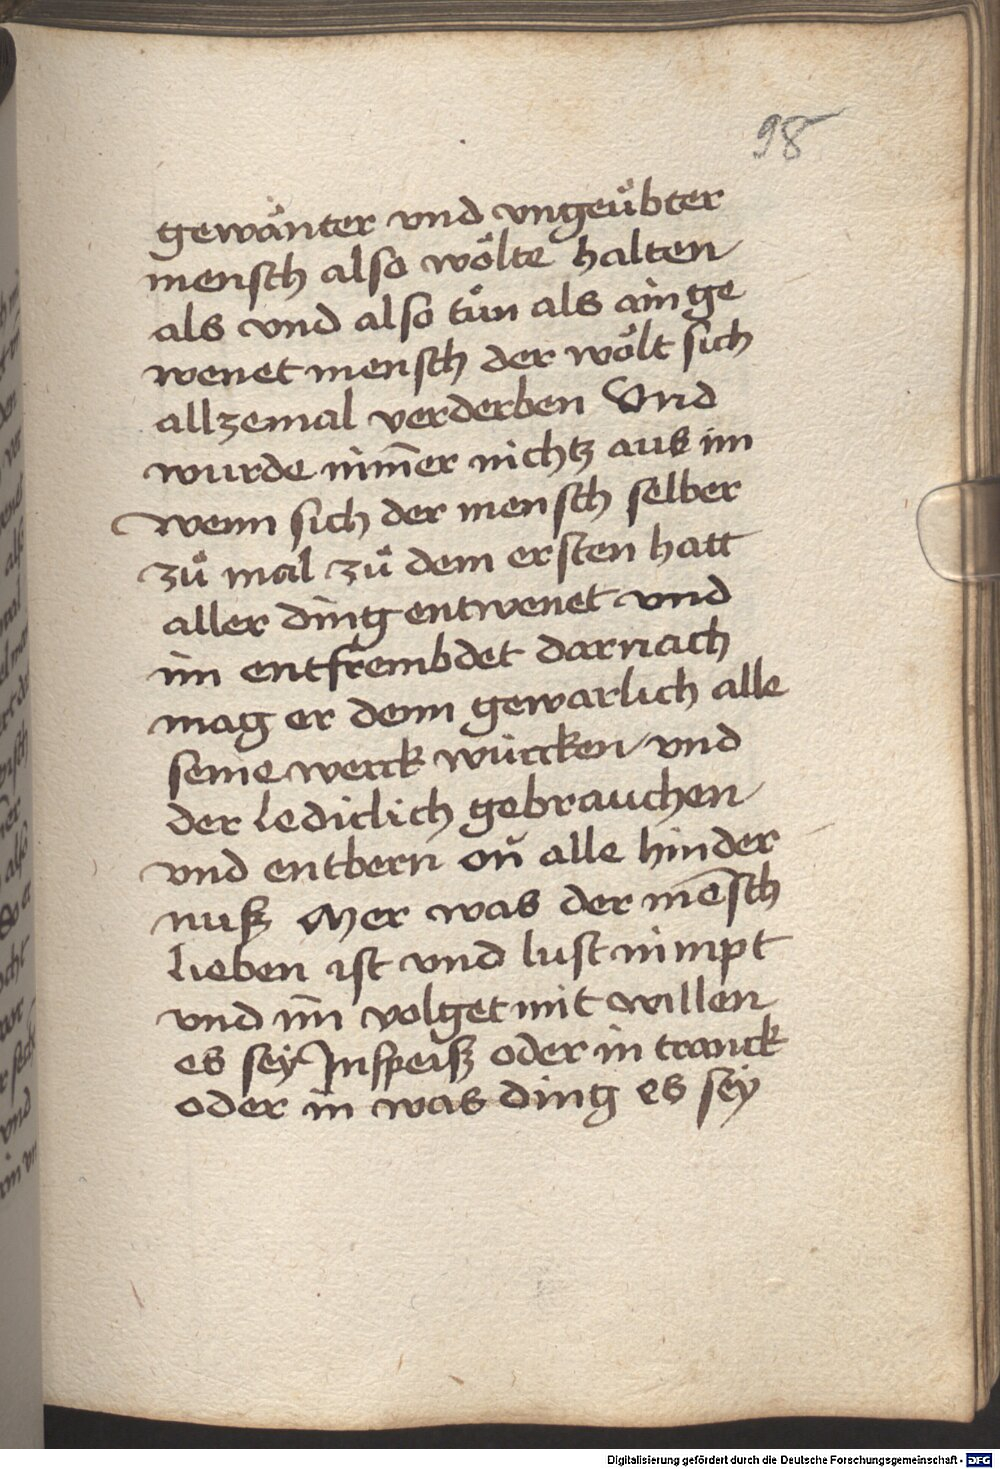 98
gewänter vnd vngeuͤbter
mensch also woͤlte halten
als vnd also tuͦn als ain ge
wenet mensch der woͤlt sich
allzemal verderben Vnd
wurde nim̄er nichtz aus im
wenn sich der mensch selber
zuͦ mal zuͦ dem ersten hatt
aller ding entwenet vnd
im entfrembdet darnach
mag er denn gewarlich alle
seine werck wurcken vnd
der lediclich gebrauchen
vnd entbern on alle hinder
nuß Mer was der mēsch
lieben ist vnd lust nimpt
vnd im̄ volget mit willen
es sey Jn speiß oder in tranck
oder in was ding es sey
Digitalisierung gefördert durch die Deutsche Forschungsgemeinschaft - DFG